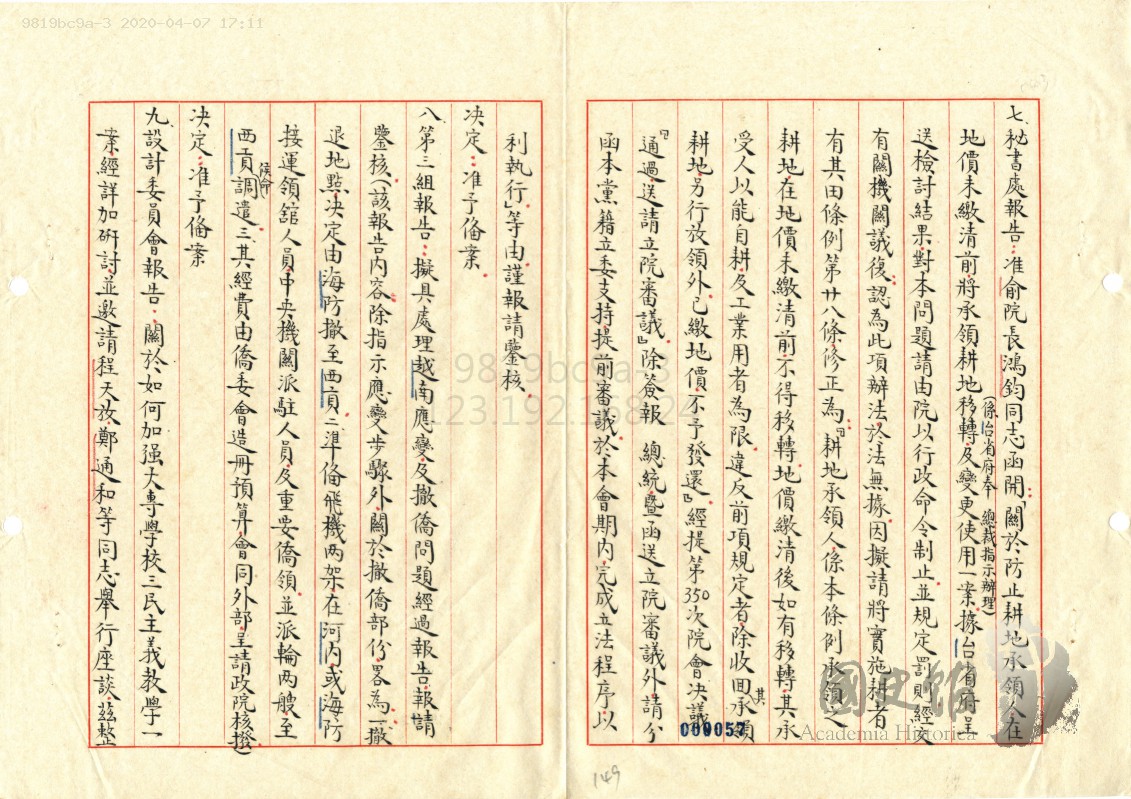 9819bc9a-3 2020-04-07 17:11
七、秘書處報告：准俞院長鴻鈞同志函開「關於防止耕地承領人在
地價未繳清前將承領耕地移轉及變更使用一案（係台省府奉 總裁指示辦理）據台省府呈
送檢討結果對本問題請由院以行政命令制止並規定罰則經交
有關機關議復認為此項辦法於法無據因擬請將實施耕者
有其田條例第廿八條修正為『耕地承領人係本條例承領之
耕地在地價未繳清前不得移轉地價繳清後如有移轉其承
受人以能自耕及工業用者為限違反前項規定者除收回其承領
耕地另行放領外已繳地價不予發還』經提第350次院會決議
『通過送請立院審議』除簽報 總統暨函送立院審議外請分
函本黨籍立委支持提前審議於本會期內完成立法程序以
利執行」等由謹報請鑒核
決定：准予備案
八、第三組報告：擬具處理越南應變及撤僑問題經過報告報請
鑒核（該報告內容除指示應變步驟外關於撤僑部份畧為一、撤
退地點決定由海防撤至西貢二、準備飛機兩架在河內或海防
接運領舘人員中央機關派駐人員及重要僑領並派輪兩艘至
西貢候命調遣三、其經費由僑委會造冊預算會同外部呈請政院核撥）
決定：准予備案
九、設計委員會報告、關於如何加强大專學校三民主義教學一
案經詳加研討並邀請程天放鄭通和等同志舉行座談茲整
000057
149
國史館
Academia Historica
9819bc9a-3
123.192.168.24